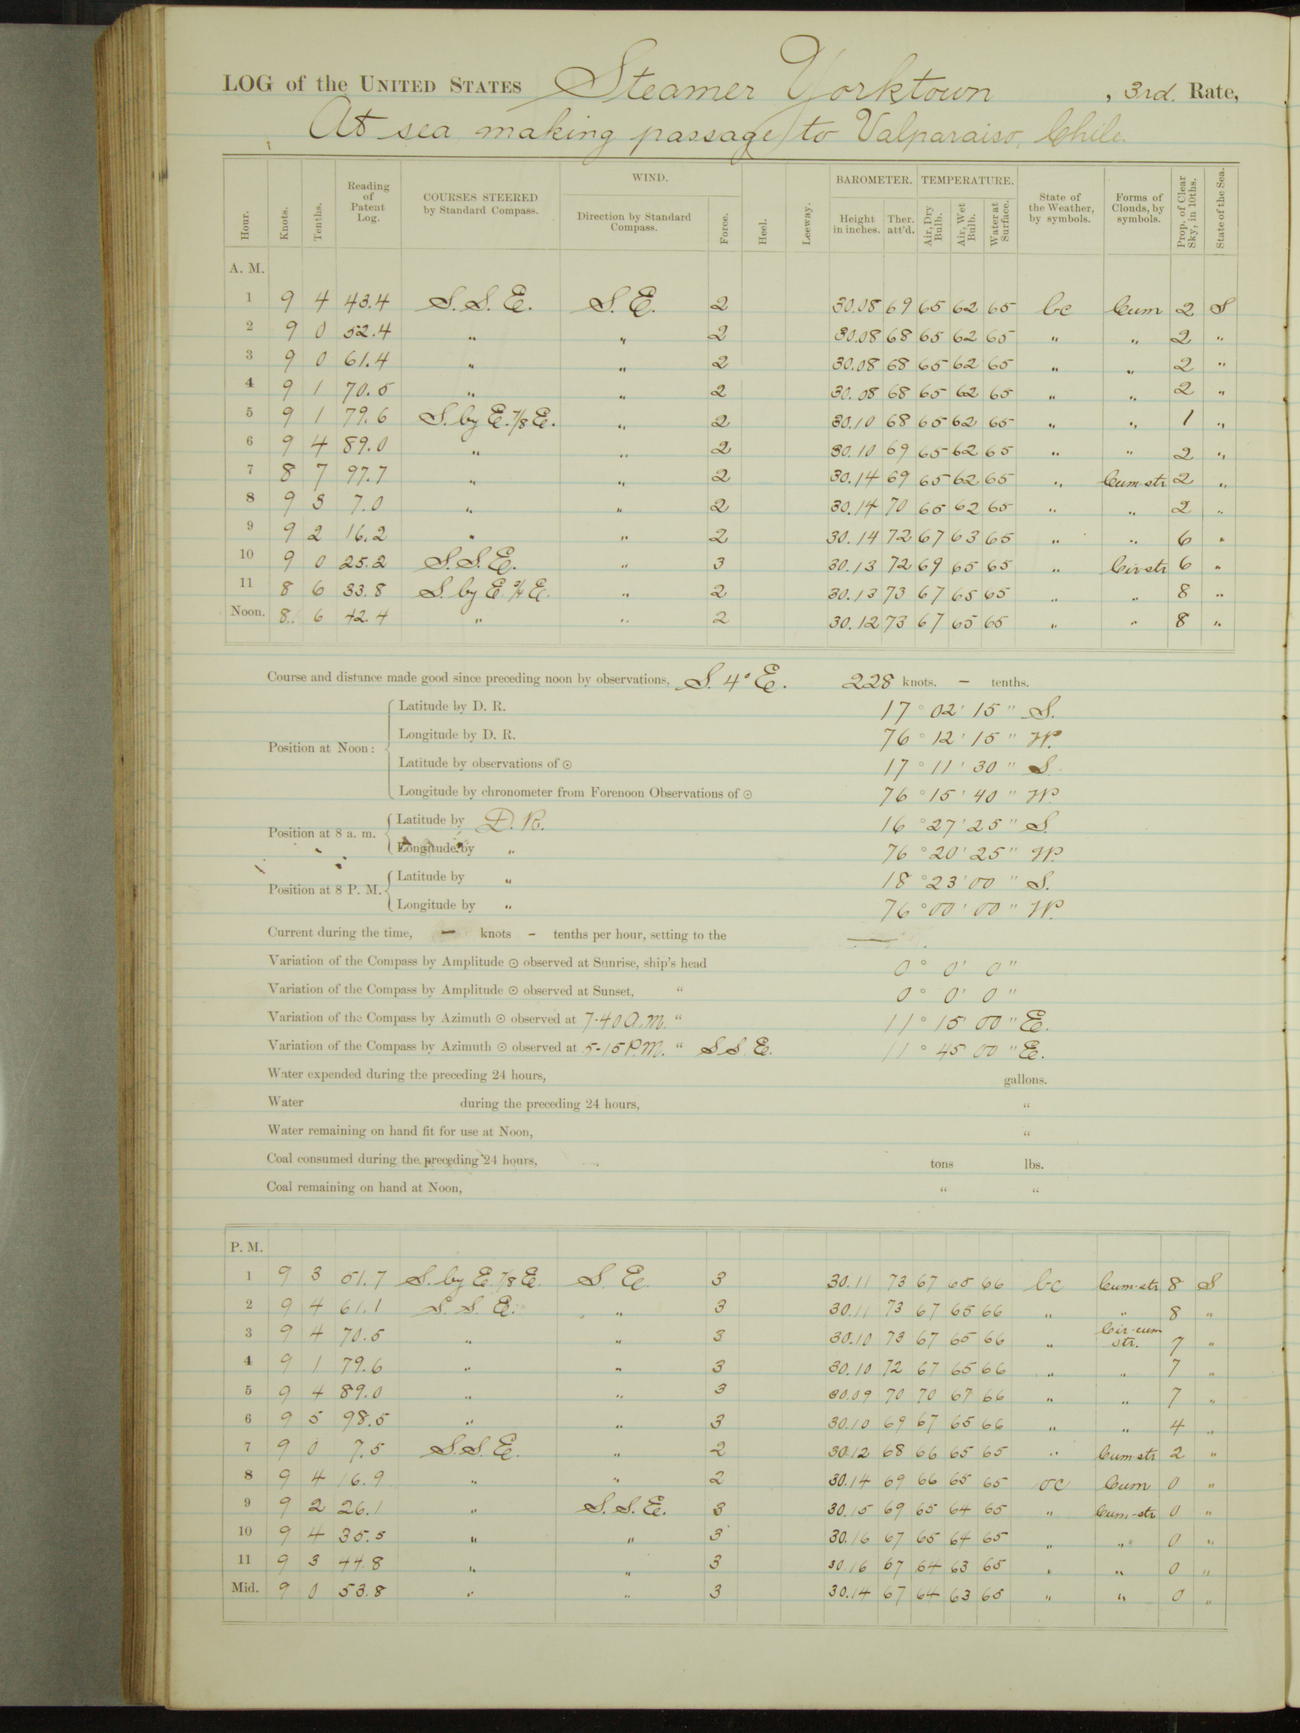 LOG of the UNITED STATES Steamer Yorktown, 3rd. Rate,
At sea making passage to Valparaiso, Chile.
Hour. Knots. Tenths. Reading of Patent Log. COURSES STEERED by Standard Compass. WIND. Direction by Standard Compass. Force. Heel. Leeway. BAROMETER. Height in inches. Ther. att'd. TEMPERATURE. Air, Dry Bulb. Air, Wet Bulb. Water at Surface. State of the Weather, by symbols. Forms of Clouds, by symbols. Prop. of Clear Sky, in 10ths. State of the Sea.
A. M.
1 9 4 43.4 S. S. E. S. E. 2 30.08 69 65 62 65 bc Cum 2 S
2 9 0 52.4 " " 2 30.08 68 65 62 65 " " 2 "
3 9 0 61.4 " " 2 30.08 68 65 62 65 " " 2 "
4 9 1 70.5 " " 2 30.08 68 65 62 65 " " 2 "
5 9 1 79.6 S. by E. 7/8 E. " 2 30.10 68 65 62 65 " " 1 "
6 9 4 89.0 " " 2 30.10 69 65 62 65 " " 2 "
7 8 7 97.7 " " 2 30.14 69 65 62 65 " Cum-str 2 "
8 9 3 7.0 " " 2 30.14 70 65 62 65 " " 2 "
9 9 2 16.2 " " 2 30.14 72 67 63 65 " " 6 "
10 9 0 25.2 S. S. E. " 3 30.13 72 69 65 65 " Cir-str 6 "
11 8 6 33.8 S. by E. 3/4 E. " 2 30.13 73 67 65 65 " " 8 "
Noon. 8 6 42.4 " " 2 30.12 73 67 65 65 " " 8 "
Course and distance made good since preceding noon by observations, S. 4° E. 228 knots. – tenths.
Position at Noon:
Latitude by D. R. 17° 02' 15" S.
Longitude by D. R. 76° 12' 15" W.
Latitude by observations of ⊙ 17° 11' 30" S.
Longitude by chronometer from Forenoon Observations of ⊙ 76° 15' 40" W.
Position at 8 a. m. Latitude by D. R. 16° 27' 25" S.
Longitude by " 76° 20' 25" W.
Position at 8 P. M. Latitude by " 18° 23' 00" S.
Longitude by " 76° 00' 00" W.
Current during the time, – knots – tenths per hour, setting to the —
Variation of the Compass by Amplitude ⊙ observed at Sunrise, ship's head 0° 0' 0"
Variation of the Compass by Amplitude ⊙ observed at Sunset, " 0° 0' 0"
Variation of the Compass by Azimuth ⊙ observed at 7-40 A.M. " 11° 15' 00" E.
Variation of the Compass by Azimuth ⊙ observed at 5-15 P.M. " S S E. 11° 45' 00" E.
Water expended during the preceding 24 hours, gallons.
Water during the preceding 24 hours, "
Water remaining on hand fit for use at Noon, "
Coal consumed during the preceding 24 hours, tons lbs.
Coal remaining on hand at Noon, " "
P. M.
1 9 3 51.7 S. by E. 7/8 E. S. E. 3 30.11 73 67 65 66 bc Cum-str 8 S
2 9 4 61.1 S. S. E. " 3 30.11 73 67 65 66 " " 8 "
3 9 4 70.5 " " 3 30.10 73 67 65 66 " Cir-cum str. 7 "
4 9 1 79.6 " " 3 30.10 72 67 65 66 " " 7 "
5 9 4 89.0 " " 3 30.09 70 70 67 66 " " 7 "
6 9 5 98.5 " " 3 30.10 69 67 65 66 " " 4 "
7 9 0 7.5 S. S. E. " 2 30.12 68 66 65 65 " Cum str 2 "
8 9 4 16.9 " " 2 30.14 69 66 65 65 oc Cum 0 "
9 9 2 26.1 " S. S. E. 3 30.15 69 65 64 65 " Cum-str 0 "
10 9 4 35.5 " " 3 30.16 67 65 64 65 " " 0 "
11 9 3 44.8 " " 3 30.16 67 64 63 65 " " 0 "
Mid. 9 0 53.8 " " 3 30.14 67 64 63 65 " " 0 "